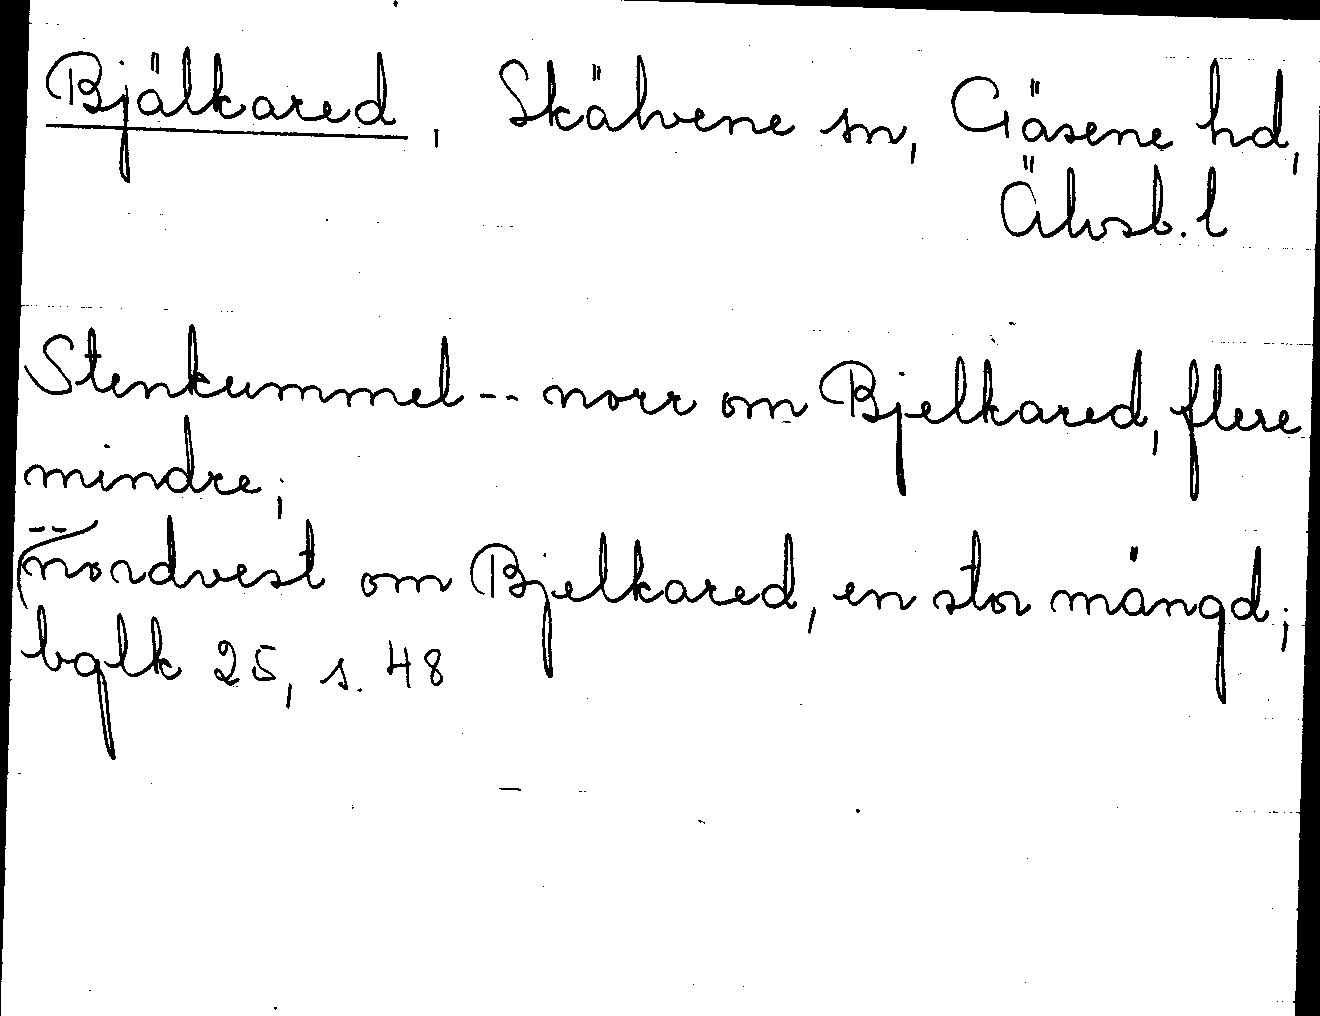 Bjälkared, Skälvene sn, Gäsene hd,
Älvsb. l
Stenkummel -- norr om Bjelkared, flere
mindre;
-- nordvest om Bjelkared, en stor mängd;
bglk 25, s. 48